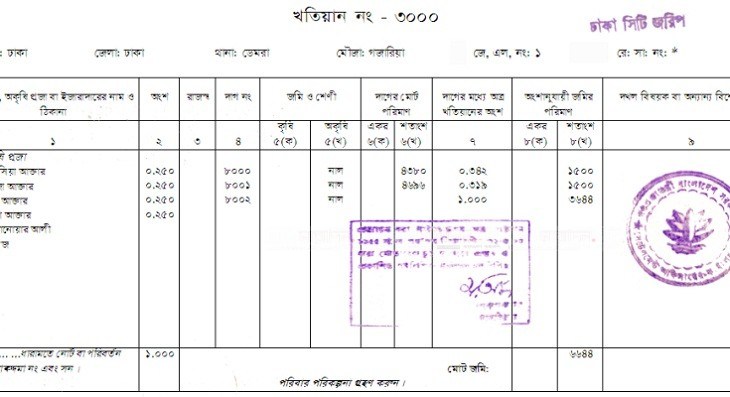 খতিয়ান নং - ৩০০০
ঢাকা সিটি জরিপ
: ঢাকা জেলা: ঢাকা থানা: ডেমরা মৌজা: গজারিয়া জে, এল, নং: ১ রে: সা: নং: *
, অকৃষি প্রজা বা ইজারাদারের নাম ও ঠিকানা
অংশ
রাজস্ব
দাগ নং
জমি ও শ্রেণী
দাগের মোট পরিমাণ
দাগের মধ্যে অত্র খতিয়ানের অংশ
অংশানুযায়ী জমির পরিমাণ
দখল বিষয়ক বা অন্যান্য বিশে
কৃষি অকৃষি একর শতাংশ একর শতাংশ
১ ২ ৩ ৪ ৫(ক) ৫(খ) ৬(ক) ৬(খ) ৭ ৮(ক) ৮(খ) ৯
ষি প্রজা
সিয়া আক্তার ০.২৫০ ৮০০০ নাল ৪৩৮০ ০.৩৪২ ১৫০০
আক্তার ০.২৫০ ৮০০১ নাল ৪৬৯৬ ০.৩১৯ ১৫০০
আক্তার ০.২৫০ ৮০০২ নাল ১.০০০ ৩৬৪৪
আক্তার ০.২৫০
নোয়ার আলী
জ
... ...ধারামতে নোট বা পরিবর্তন ১.০০০ ৬৬৪৪
নং এবং সন । মোট জমি:
পরিবার পরিকল্পনা গ্রহণ করুন ।